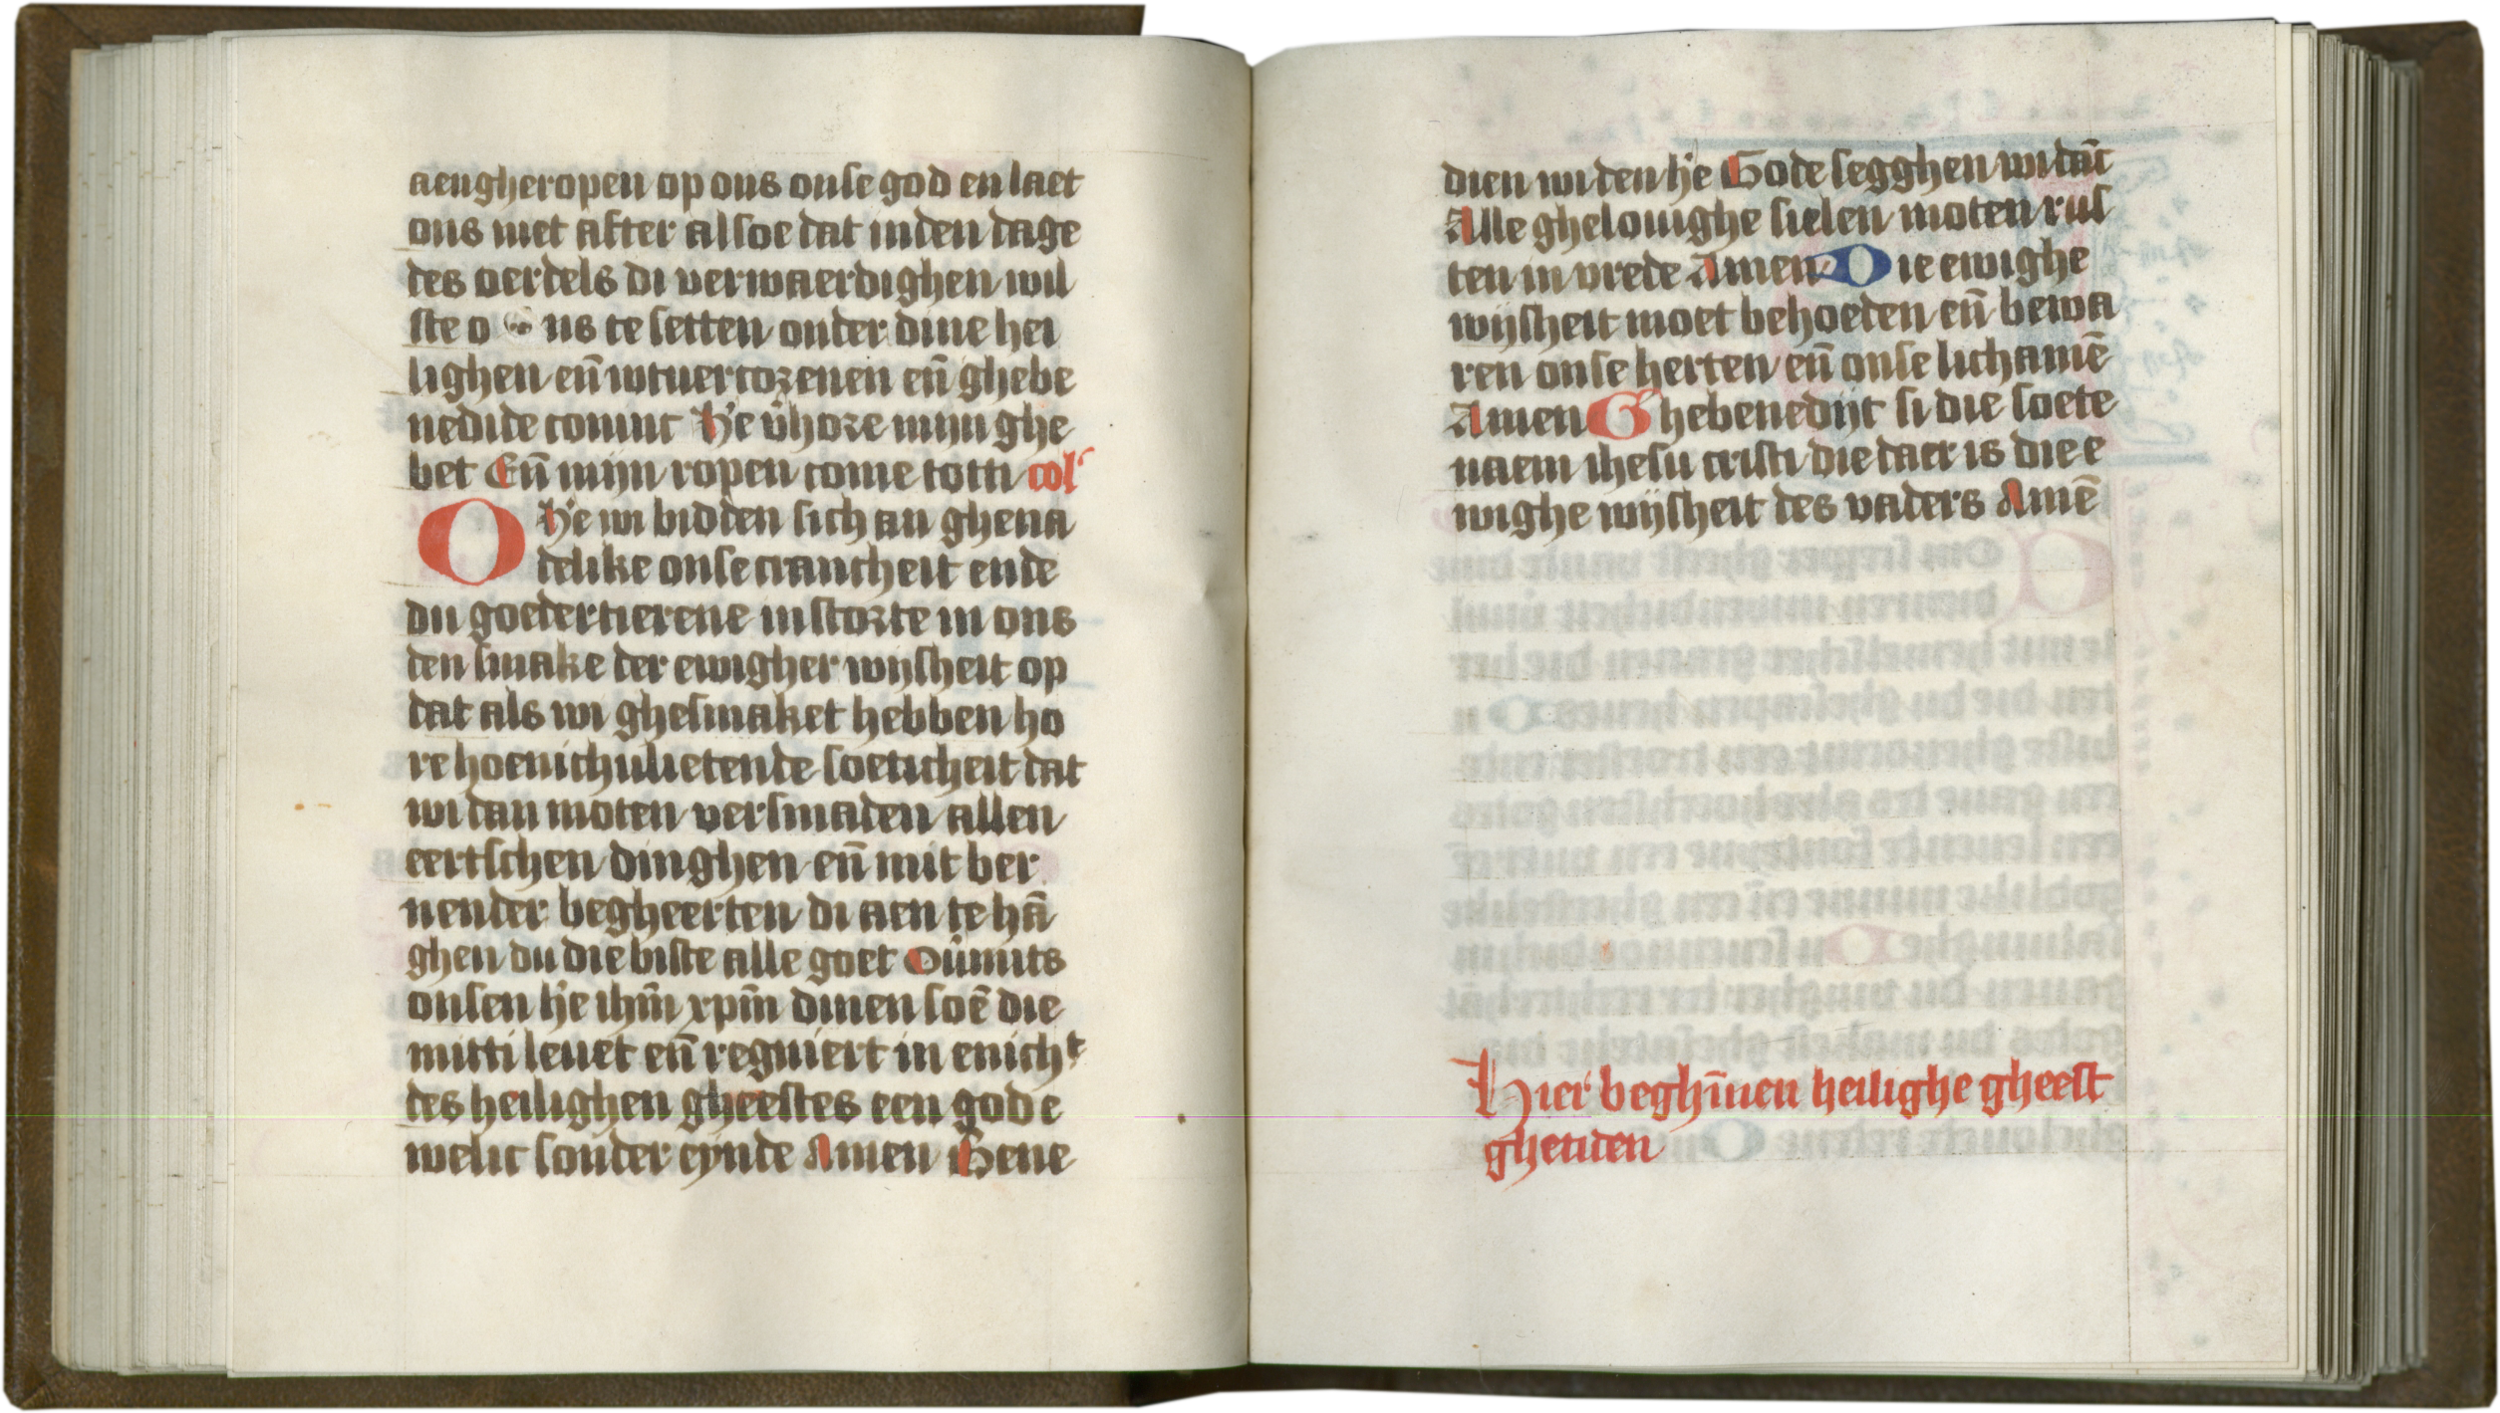 aengheropen op ons onse god en laet
ons niet after alsoe dat inden dage
des oerdels di verwaerdighen wil
ste o ns te setten onder dine hei
lighen en̄ wtuercozenen en̄ ghebe
nedide comt H'e v̄hoze mijn ghe
bet En̄ mijn ropen come totti col'
O H'e wi bidden sich an ghena
delike onse crancheit ende
du goedertierene instozte in ons
den smake der ewigher wijsheit op
dat als wi ghesmaket hebben ho
re hoenichulietende soeticheit dat
wi dan moten versmaden allen
eertschen dinghen en̄ mit ber
nender begheerten di aen te hā
ghen du die biste alle goet Oūmits
onsen h'e ihm̄ xpm̄ dinen soē die
mitti leuet en̄ regniert in enicht
des heilighen gheestes een god e
welic sonder eynde Amen Bene
dien wi den h'e Gode segghen wi dāc
Alle ghelouighe sielen moten rus
ten in vrede Amen Die ewighe
wijsheit moet behoeden en̄ bewa
ren onse herten en̄ onse lichamē
Amen Ghebenedijt si die soete
naem ihesu cristi die daer is die e
wighe wijsheit des vaders Amē
Hier beghīnen heilighe gheest
ghetiden